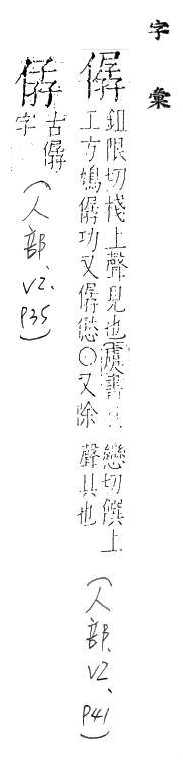 字彙
僝
鉏限切棧上聲見也虞書
工方鳩僝功又僝僽〇又除
戀切饌上
聲具也
(人部、V2、P41)
古僝
字
(人部、V2、P35)